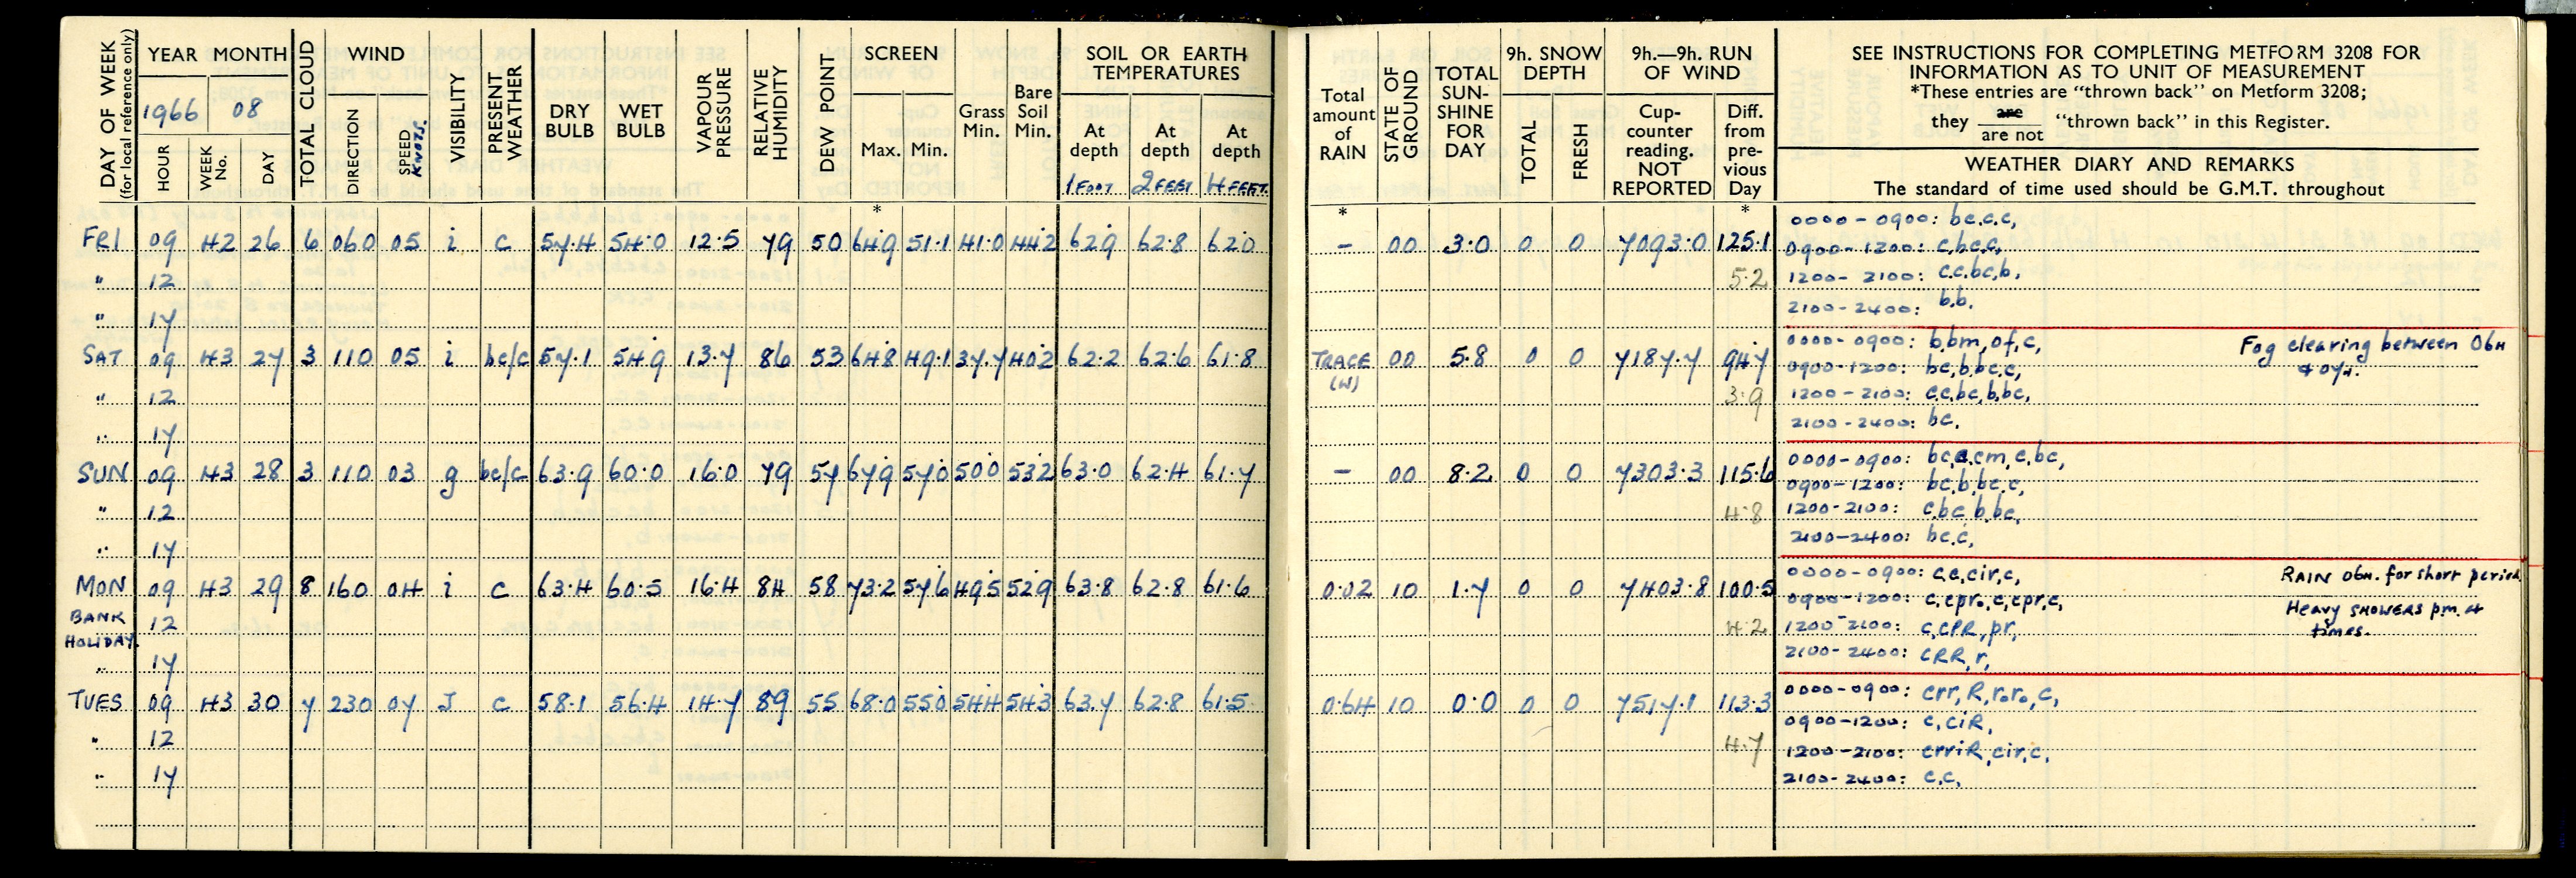 DAY OF WEEK
(for local reference only)
YEAR MONTH
1966 08
HOUR
WEEK No.
DAY
TOTAL CLOUD
WIND
DIRECTION
SPEED
KNOTS.
VISIBILITY
PRESENT WEATHER
DRY BULB
WET BULB
VAPOUR PRESSURE
RELATIVE HUMIDITY
DEW POINT
SCREEN
Max. Min.
*
Grass Min.
Bare Soil Min.
SOIL OR EARTH
TEMPERATURES
At depth At depth At depth
1 FOOT 2 FEET 4 FEET.
Total amount of RAIN
*
STATE OF GROUND
TOTAL SUN-SHINE FOR DAY
9h. SNOW DEPTH
TOTAL
FRESH
9h.—9h. RUN OF WIND
Cup-counter reading. NOT REPORTED
Diff. from pre-vious Day
*
SEE INSTRUCTIONS FOR COMPLETING METFORM 3208 FOR
INFORMATION AS TO UNIT OF MEASUREMENT
*These entries are "thrown back" on Metform 3208;
they are / are not "thrown back" in this Register.
WEATHER DIARY AND REMARKS
The standard of time used should be G.M.T. throughout
FRI 09 42 26 6 060 05 i c 57.4 54.0 12.5 79 50 64.9 51.1 41.0 44.2 62.9 62.8 62.0 – 00 3.0 0 0 7093.0 125.1
0000 - 0900: bc.c.c,
0900 - 1200: c,bc.c,
" 12 5.2
1200 - 2100: c.c.bc,b,
" 17
2100 - 2400: b.b.
SAT 09 43 27 3 110 05 i bc/c 57.1 54.9 13.7 86 53 64.8 49.1 37.7 40.2 62.2 62.6 61.8 TRACE (W) 00 5.8 0 0 7187.7 94.7
0000 - 0900: b,bm,of,c,
Fog clearing between 06H
& 07H.
0900 - 1200: bc,b,bc.c,
" 12 3.9
1200 - 2100: c.c.bc,b,bc,
" 17
2100 - 2400: bc.
SUN 09 43 28 3 110 03 g bc/c 63.9 60.0 16.0 79 57 67.9 57.0 50.0 53.2 63.0 62.4 61.7 – 00 8.2 0 0 7303.3 115.6
0000 - 0900: bc,c.cm,c,bc,
0900 - 1200: bc,b,bc.c,
" 12 4.8
1200 - 2100: c,bc,b,bc,
" 17
2100 - 2400: bc.c,
MON 09 43 29 8 160 04 i c 63.4 60.5 16.4 84 58 73.2 57.6 49.5 52.9 63.8 62.8 61.6 0.02 10 1.7 0 0 7403.8 100.5
0000 - 0900: c,c,cir,c,
RAIN 06H. for short period.
0900 - 1200: c,cpr₀,c,cpr,c,
BANK HOLIDAY. 12 4.2
Heavy SHOWERS pm. at
times.
1200 - 2100: c,cPR,pr,
" 17
2100 - 2400: cRR,r,
TUES 09 43 30 7 230 07 J c 58.1 56.4 14.7 89 55 68.0 55.0 54.4 54.3 63.7 62.8 61.5 0.64 10 0.0 0 0 7517.1 113.3
0000 - 0900: crr,R,r₀r₀,c,
0900 - 1200: c,ciR,
" 12 4.7
1200 - 2100: crriR,cir,c,
" 17
2100 - 2400: c.c,